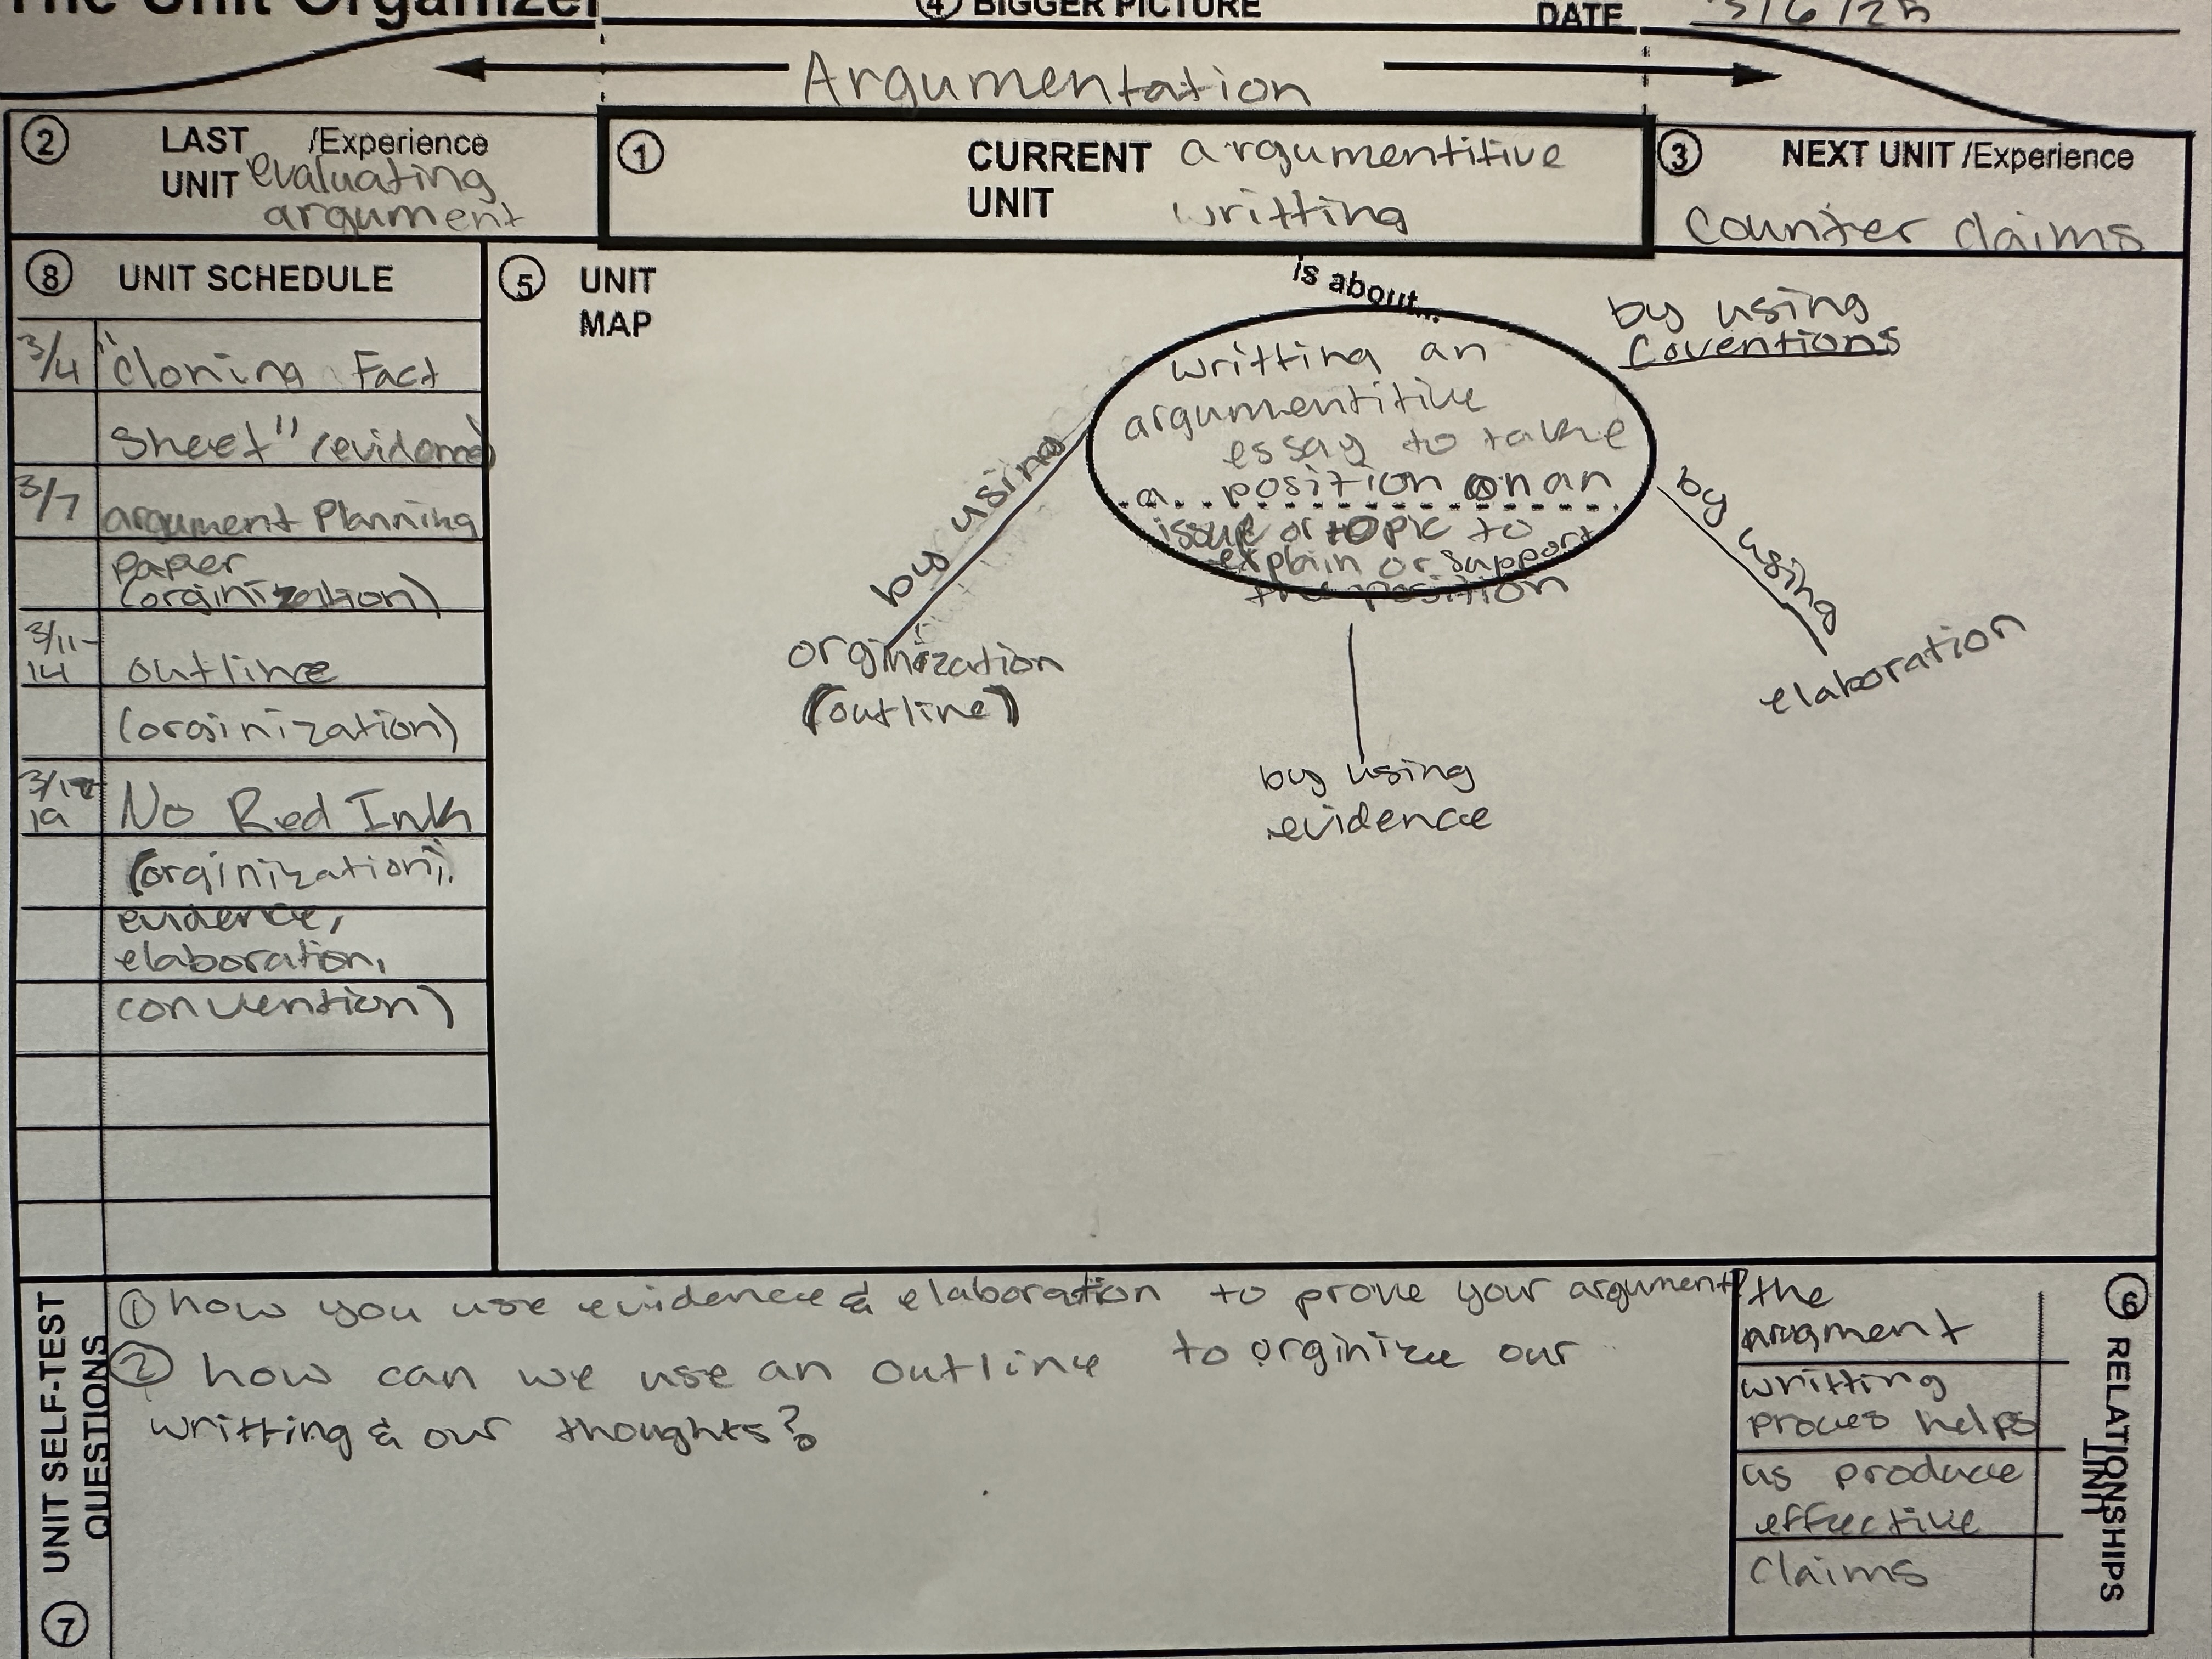 The Unit Organizer
④ BIGGER PICTURE
DATE 3/6/25
Argumentation
② LAST UNIT /Experience
evaluating
argument
① CURRENT UNIT
argumentitive
writting
③ NEXT UNIT /Experience
Counter claims
⑧ UNIT SCHEDULE
3/4 "Cloning Fact
Sheet" (evidence)
3/7 argument Planning
Paper
(orginization)
3/11-14 outline
(orginization)
No Red Ink
(orginization,
evidence,
elaboration,
convention)
⑤ UNIT
MAP
is about...
writting an
argumentitive
essay to take
a position on an
issue or topic to
explain or support
the position
by using
coventions
by using
orginization
(outline)
by using
evidence
by using
elaboration
⑦ UNIT SELF-TEST
QUESTIONS
① how you use evidence & elaboration to prove your argument?
② how can we use an outline to orginize our
writting & our thoughts?
⑥ UNIT
RELATIONSHIPS
the
argment
writting
proces helps
us produce
effective
claims